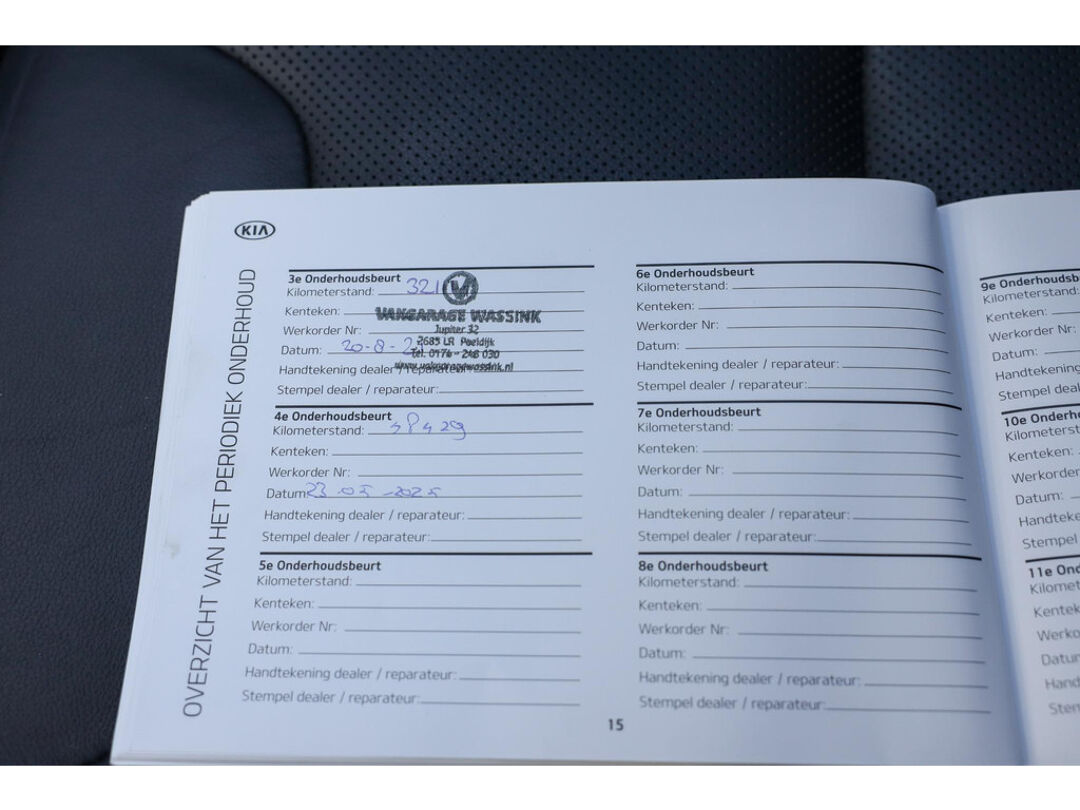 KIA
OVERZICHT VAN HET PERIODIEK ONDERHOUD
3e Onderhoudsbeurt
Kilometerstand: 321
Kenteken:
VAKGARAGE WASSINK
Werkorder Nr:
Jupiter 32
2685 LR Poeldijk
Datum: 20-8-2
Tel. 0174 - 248 030
www.vakgaragewassink.nl
Handtekening dealer / reparateur:
Stempel dealer / reparateur:
4e Onderhoudsbeurt
Kilometerstand:
Kenteken:
Werkorder Nr:
Datum: 23-05-2025
Handtekening dealer / reparateur:
Stempel dealer / reparateur:
5e Onderhoudsbeurt
Kilometerstand:
Kenteken:
Werkorder Nr:
Datum:
Handtekening dealer / reparateur:
Stempel dealer / reparateur:
6e Onderhoudsbeurt
Kilometerstand:
Kenteken:
Werkorder Nr:
Datum:
Handtekening dealer / reparateur:
Stempel dealer / reparateur:
7e Onderhoudsbeurt
Kilometerstand:
Kenteken:
Werkorder Nr:
Datum:
Handtekening dealer / reparateur:
Stempel dealer / reparateur:
8e Onderhoudsbeurt
Kilometerstand:
Kenteken:
Werkorder Nr:
Datum:
Handtekening dealer / reparateur:
Stempel dealer / reparateur:
15
9e Onderhoudsb
Kilometerstand:
Kenteken:
Werkorder Nr:
Datum:
Handtekening
Stempel deale
10e Onderho
Kilometerst
Kenteken:
Werkorder
Datum:
Handteke
Stempel
11e Ond
Kilome
Kentek
Werko
Datur
Hand
Sten